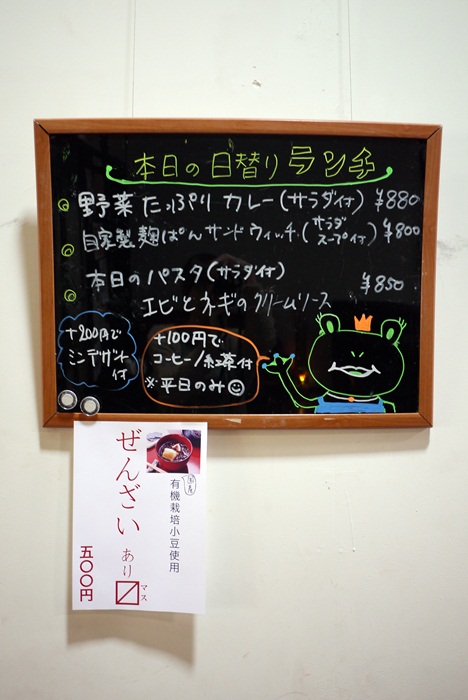 本日の日替りランチ
野菜たっぷりカレー(サラダ付) ¥880
自家製麹ぱんサンドウィッチ(サラダ スープ付) ¥800
本日のパスタ(サラダ付)
エビとネギのクリームソース ¥850
+200円で
ミニデザート
付
+100円で
コーヒー/紅茶付
※平日のみ
ぜんざい
あり〼
マス
五〇〇円
国産
有機栽培小豆使用